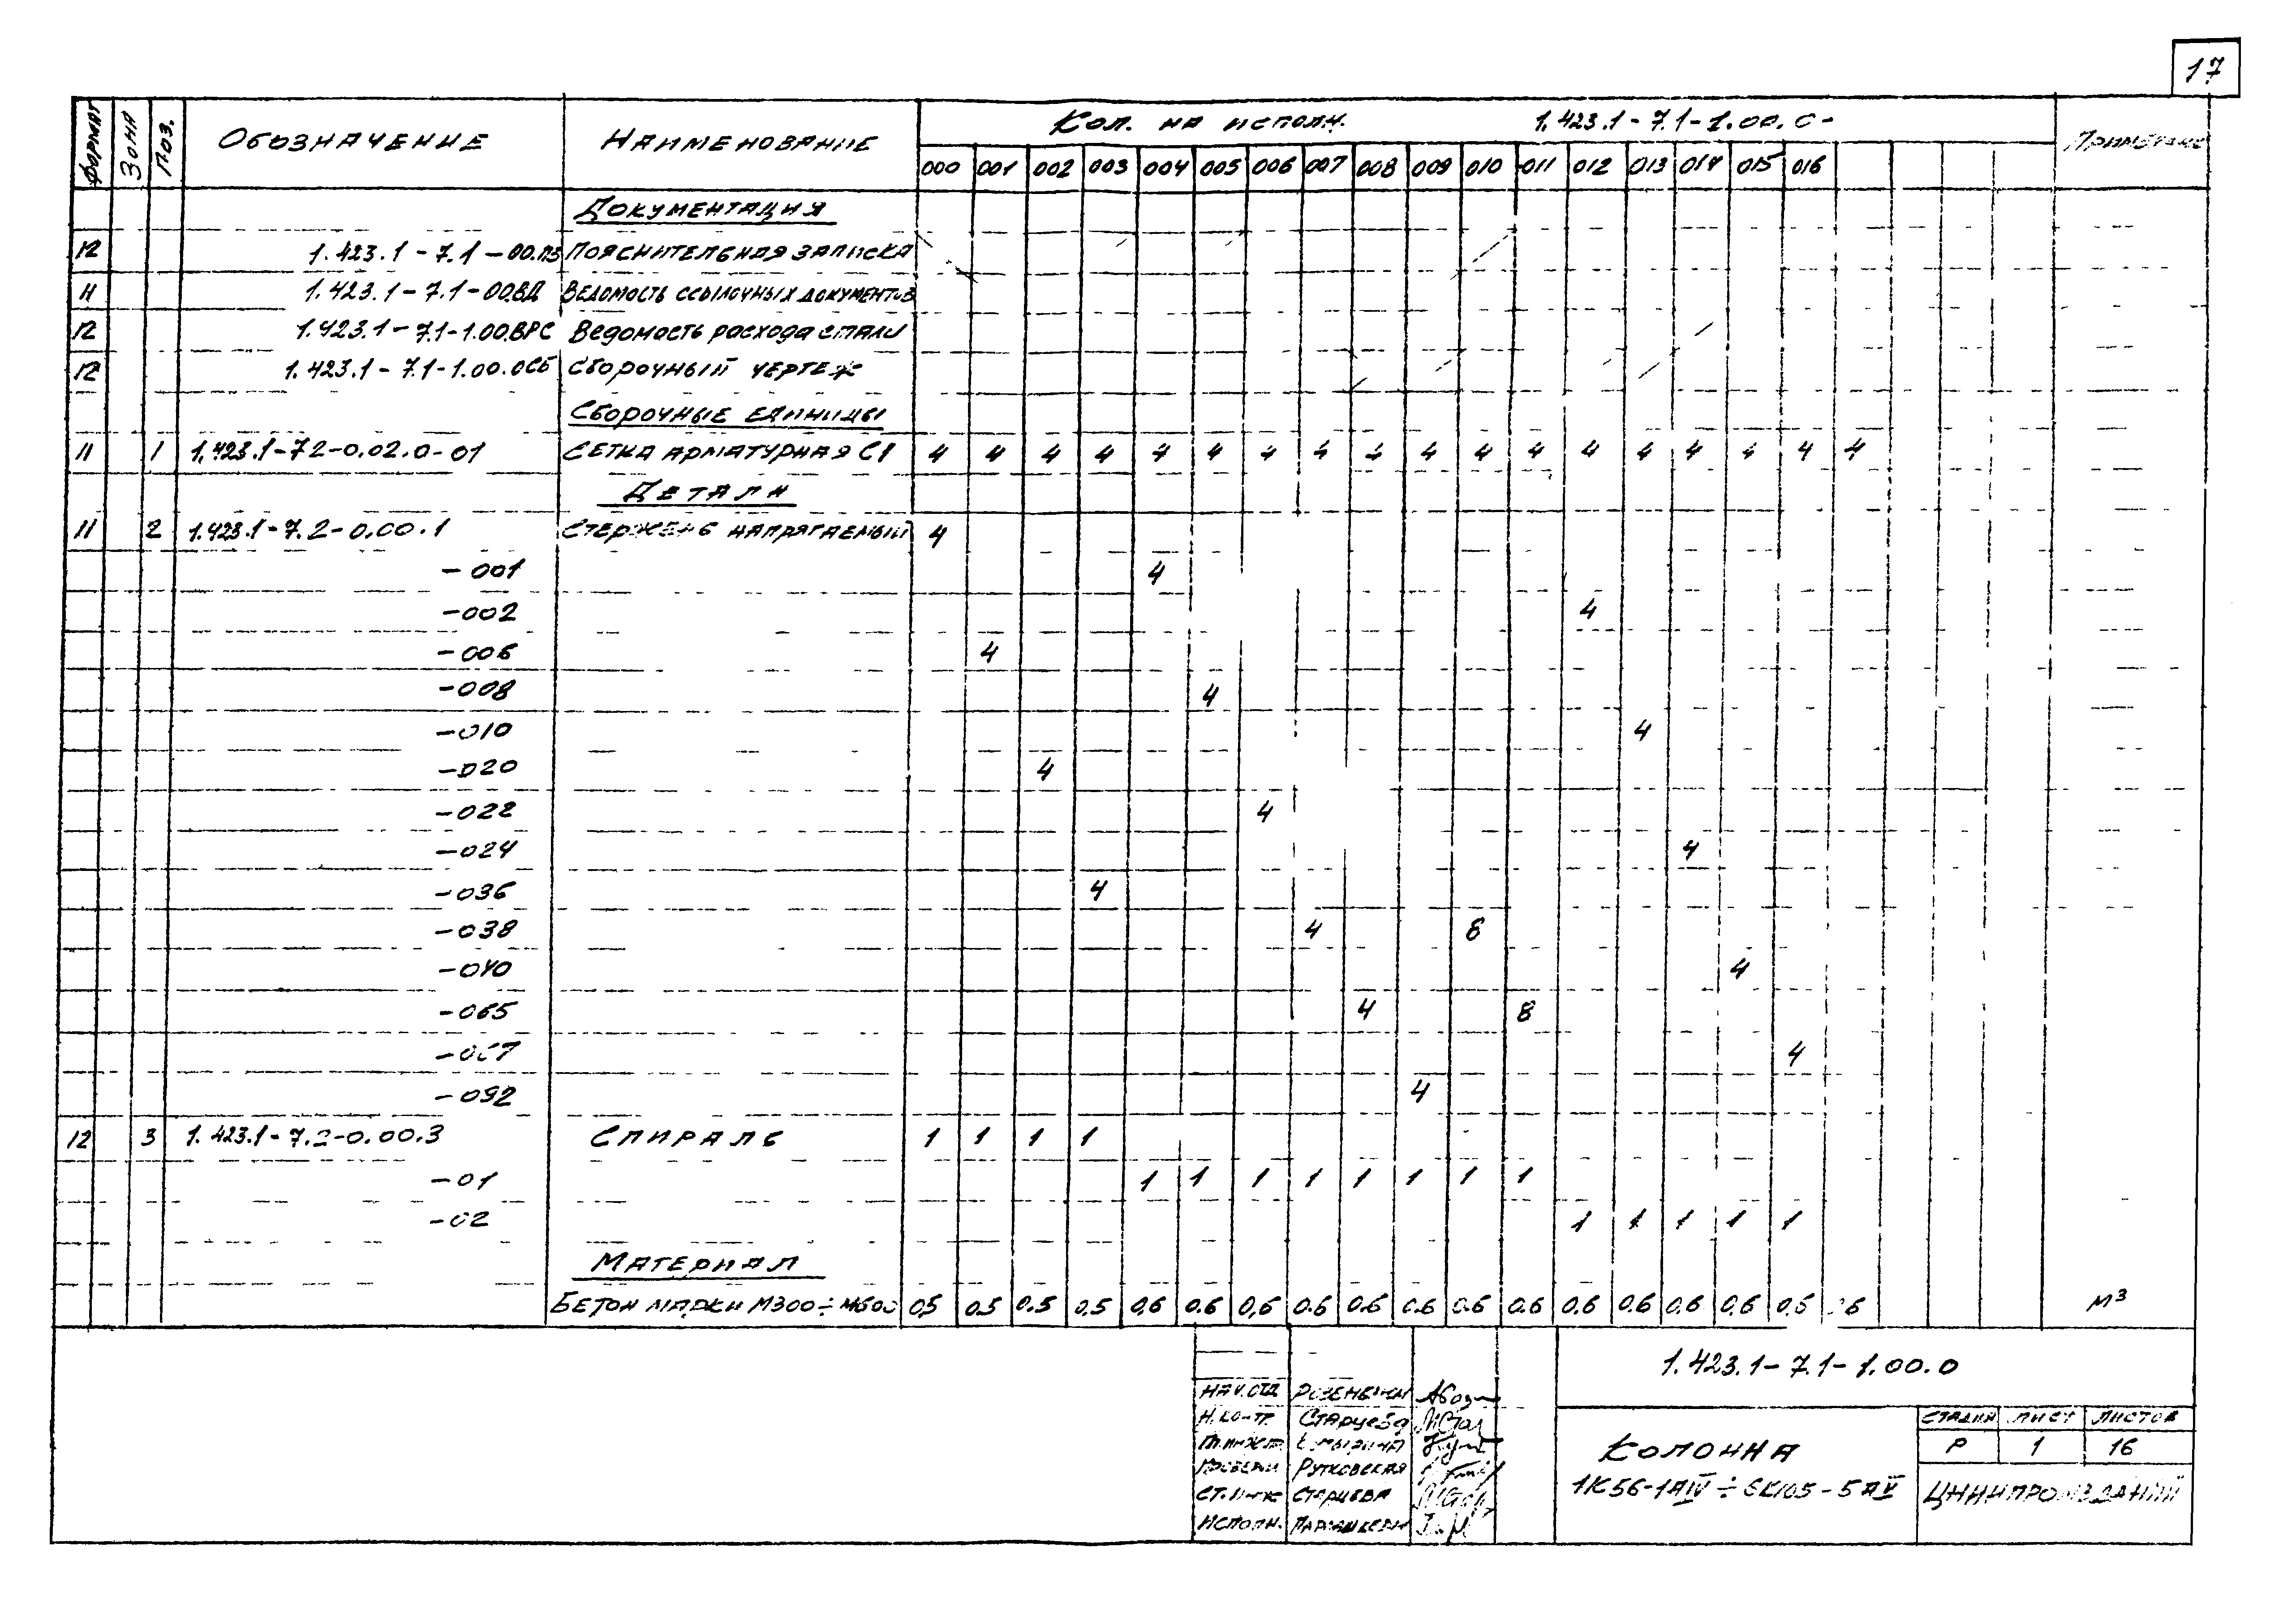 17
Формат Зона Поз. Обозначение Наименование Кол. на исполн. 1.423.1-7.1-1.00.0-
000 001 002 003 004 005 006 007 008 009 010 011 012 013 014 015 016
Документация
12 1.423.1-7.1-00.ПЗ Пояснительная записка
11 1.423.1-7.1-00.ВД Ведомость ссылочных документов
12 1.423.1-7.1-1.00.ВРС Ведомость расхода стали
12 1.423.1-7.1-1.00.0СБ Сборочный чертеж
Сборочные единицы
11 1 1.423.1-7.2-0.02.0-01 Сетка арматурная С1 4 4 4 4 4 4 4 4 4 4 4 4 4 4 4 4 4 4
Детали
11 2 1.423.1-7.2-0.00.1 Стержень напрягаемый 4
-001 4
-002 4
-006 4
-008 4
-010 4
-020 4
-022 4
-024 4
-036 4
-038 4 8
-040 4
-065 4 8
-067 4
-092 4
12 3 1.423.1-7.2-0.00.3 Спираль 1 1 1 1
-01 1 1 1 1 1 1 1 1
-02 1 1 1 1 1
Материал
Бетон марки М300÷М600 0,5 0.5 0.5 0.5 0,6 0.6 0,6 0.6 0.6 0.6 0.6 0.6 0.6 0.6 0.6 0,6 0.6 М³
1.423.1-7.1-1.00.0
Нач.отд
Н.контр. Старцева
Рутковская
Ст.инж Старцева
Исполн.
Колонна
1К56-1АIV÷6К105-5АV
Стадия Лист Листов
Р 1 16
ЦНИИПРОМЗДАНИЙ